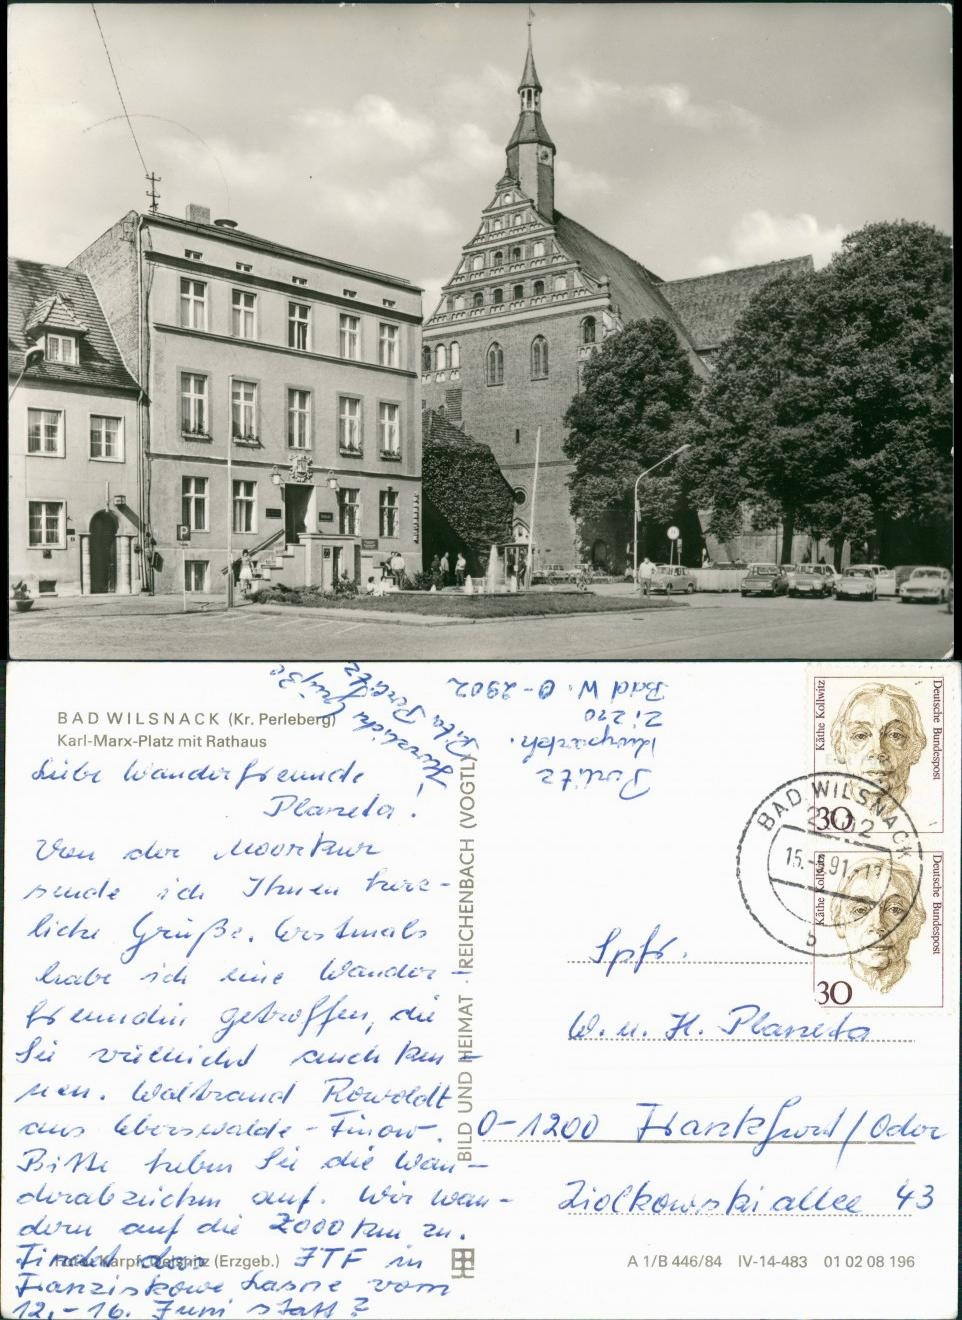 P
BAD WILSNACK (Kr. Perleberg)
Karl-Marx-Platz mit Rathaus
Liebe Wanderfreunde
Planeta!
Von der Moorkur
sende ich Ihnen herz-
liche Grüße. Erstmals
habe ich eine Wander-
freundin getroffen, die
Sie vielleicht auch ken-
nen. Waltraud Rowoldt
aus Eberswalde-Finow.
Bitte heben Sie die Wan-
derabzeichen auf. Wir wan-
dern auf die 2000 km zu.
Findet der IFTF in
vom
12.-16. Juni statt?
Herzliche Grüße
Rita Porlitz
Porlitz
Kurpark.
Zi 210
Bad W. O-2902
BILD UND HEIMAT · REICHENBACH (VOGTL)
Deutsche Bundespost
Käthe Kollwitz
30
Deutsche Bundespost
Käthe Kollwitz
30
BAD WILSNACK
2902
b
Spfr.
W. u. H. Planeta
O-1200 Frankfurt/Oder
Ziolkowskiallee 43
Foto: Karpf, Oelsnitz (Erzgeb.)
A 1/B 446/84 IV-14-483 01 02 08 196